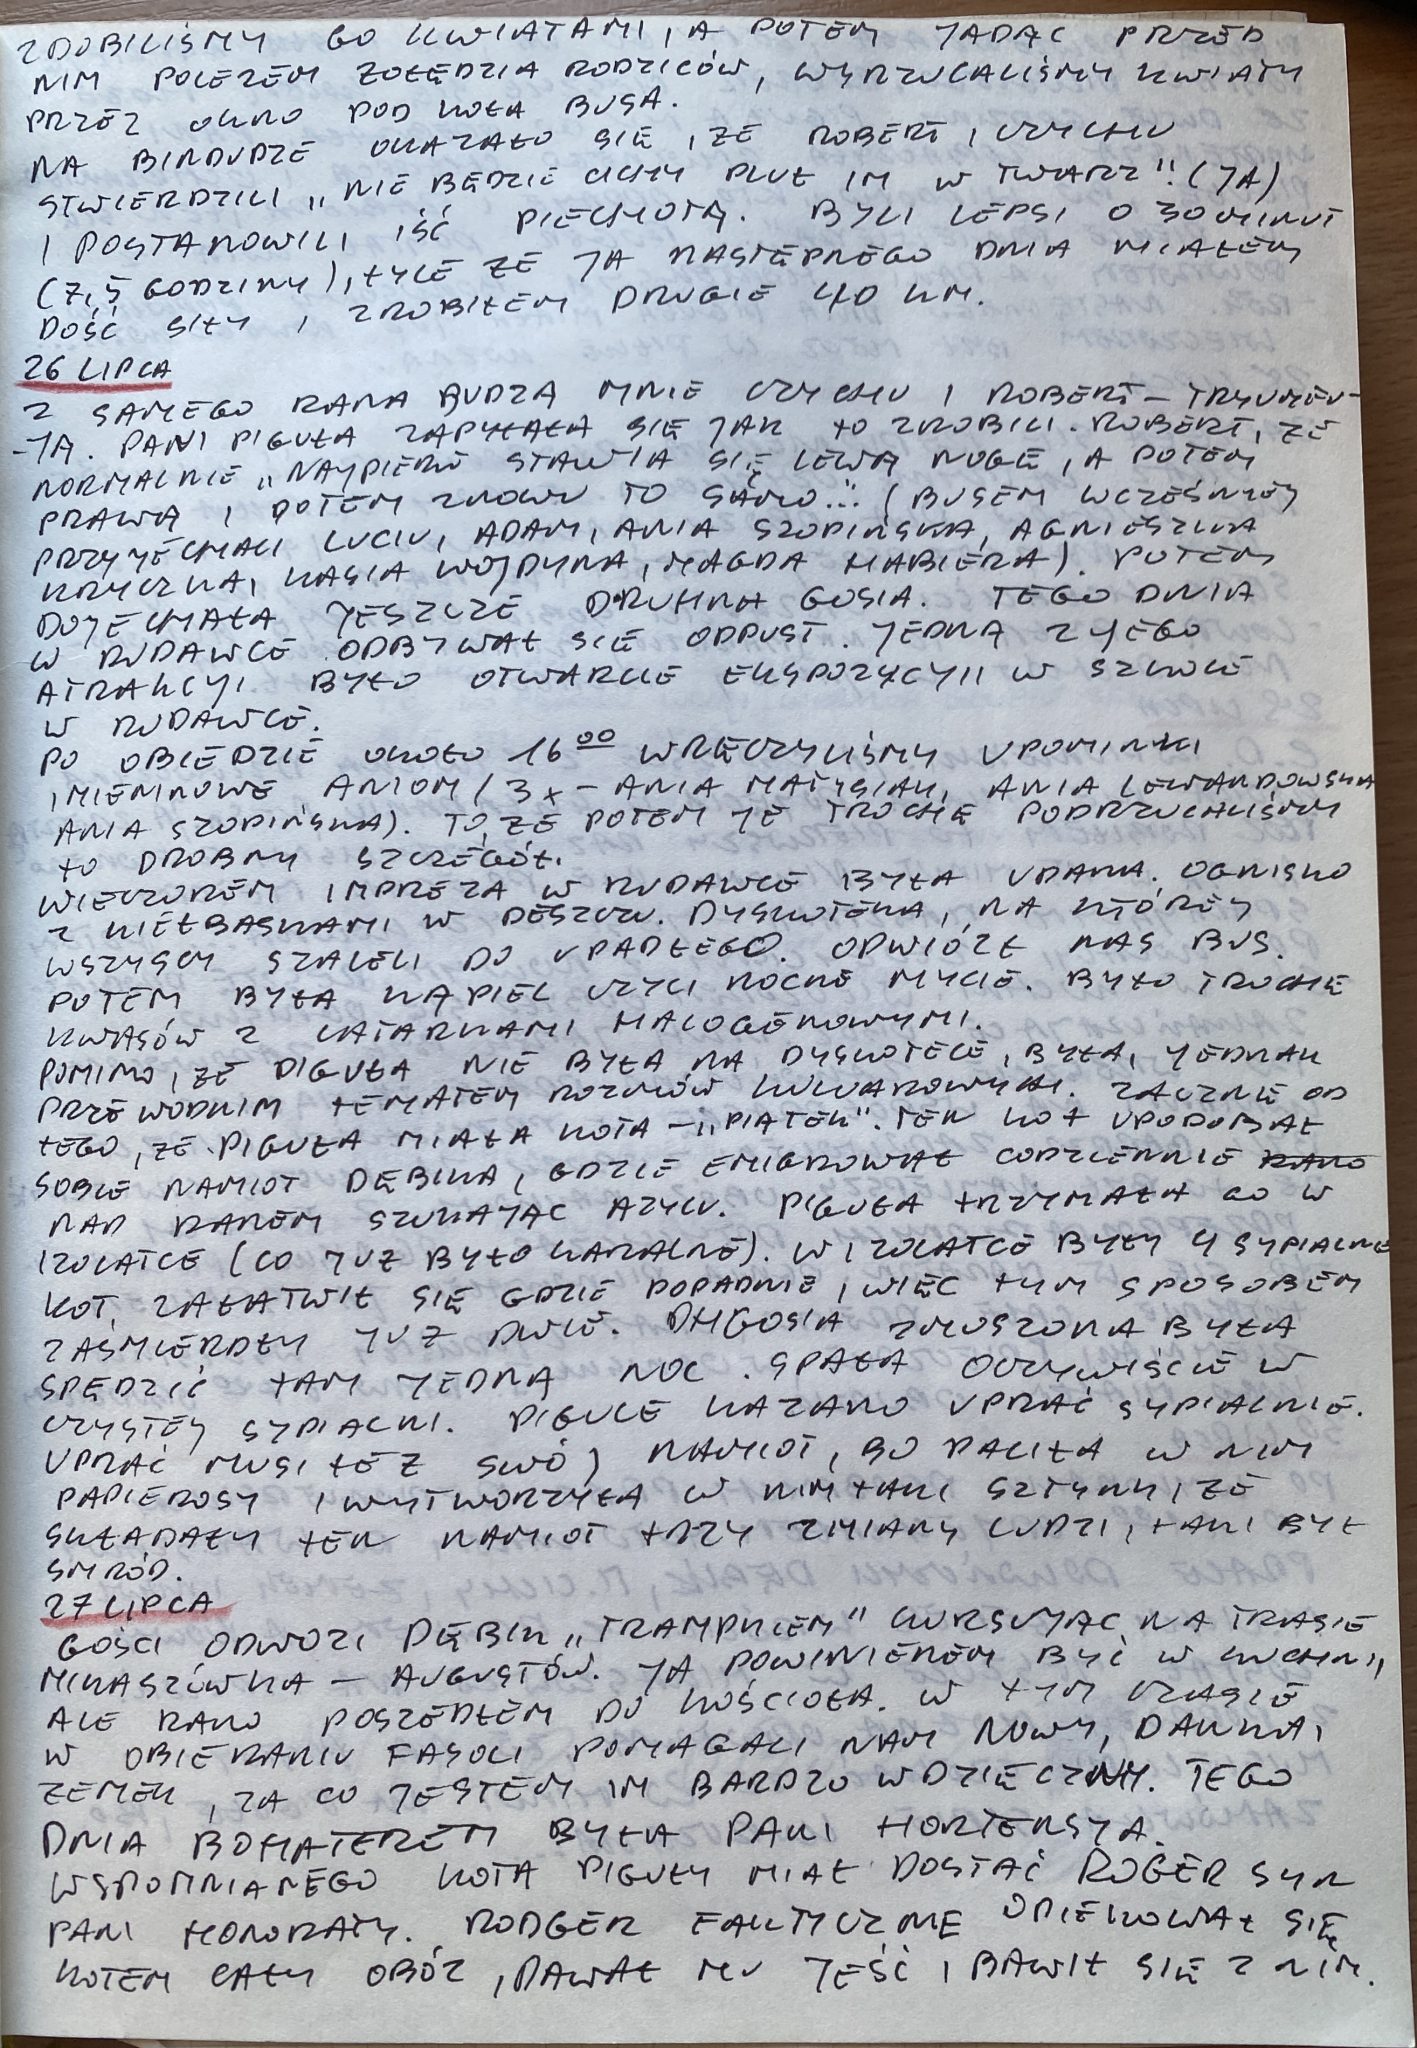 ZDOBILIŚMY GO KWIATAMI, A POTEM JADĄC PRZED
NIM POLEZEM ZOŁĘDZIA RODZICÓW, WYRZUCALIŚMY KWIATY
PRZEZ OKNO POD KOŁA BUSA.
NA BINDUDZE OKAZAŁO SIĘ, ŻE ROBERT I CZYCHU
STWIERDZILI „NIE BĘDZIE CICHY PLUŁ IM W TWARZ”! (JA)
I POSTANOWILI IŚĆ PIECHOTĄ. BYLI LEPSI O 30 MINUT
(7,5 GODZINY), TYLE ŻE JA NASTĘPNEGO DNIA MIAŁEM
DOŚĆ SIŁY I ZROBIŁEM DRUGIE 40 KM.
26 LIPCA
Z SAMEGO RANA BUDZĄ MNIE CZYCHU I ROBERT – TRYUMFU-
-JĄ. PANI PIGUŁA ZAPYTAŁA SIĘ JAK TO ZROBILI. ROBERT, ŻE
NORMALNIE „NAJPIERW STAWIA SIĘ LEWĄ NOGĘ, A POTEM
PRAWĄ I POTEM ZNOWU TO SAMO...” (BUSEM WCZEŚNIEJ
PRZYJECHALI LUCIU, ADAM, ANIA SZOPIŃSKA, AGNIESZKA
KRYCZKA, KASIA WOJDYNA, MAGDA HABIERA). POTEM
DOJECHAŁA JESZCZE DRUHNA GOSIA. TEGO DNIA
W RUDAWCE ODBYWAŁ SIĘ ODPUST. JEDNĄ Z JEGO
ATRAKCJI BYŁO OTWARCIE EKSPOZYCJI W SZKOLE
W RUDAWCE.
PO OBIEDZIE OKOŁO 16 00 WRĘCZYLIŚMY UPOMINKI
IMIENINOWE ANIOM (3x – ANIA MATYSIAK, ANIA LEWANDOWSKA
ANIA SZOPIŃSKA). TO, ŻE POTEM JE TROCHĘ PODRZUCALIŚMY
TO DROBNY SZCZEGÓŁ.
WIECZOREM IMPREZA W RUDAWCE BYŁA UDANA. OGNISKO
Z KIEŁBASKAMI W DESZCZU. DYSKOTEKA, NA KTÓREJ
WSZYSCY SZALELI DO UPADŁEGO. ODWIÓZŁ NAS BUS.
POTEM BYŁA KĄPIEL CZYLI NOCNE MYCIE. BYŁO TROCHĘ
KWASÓW Z LATARKAMI HALOGENOWYMI.
POMIMO, ŻE PIGUŁA NIE BYŁA NA DYSKOTECE, BYŁA, JEDNAK
PRZEWODNIM TEMATEM ROZMÓW KULUAROWYCH. ZACZNĘ OD
TEGO, ŻE PIGUŁA MIAŁA KOTA – „PIĄTEK”. TEN KOT UPODOBAŁ
SOBIE NAMIOT DĘBIKA, GDZIE EMIGROWAŁ CODZIENNIE RANO
NAD RANEM SZUKAJĄC AZYLU. PIGUŁA TRZYMAŁA GO W
IZOLATCE (CO JUŻ BYŁO KARALNE). W IZOLATCE BYŁY 4 SYPIALNIE
KOT, ZAŁATWIŁ SIĘ GDZIE POPADNIE, WIĘC TYM SPOSOBEM
ZAŚMIERDŁY JUŻ DWIE. DH GOSIA ZMUSZONA BYŁA
SPĘDZIĆ TAM JEDNĄ NOC. SPAŁA OCZYWIŚCIE W
CZYSTEJ SYPIALNI. PIGULE KAZANO UPRAĆ SYPIALNIE.
UPRAĆ MUSI TEŻ SWÓJ NAMIOT, BO PALIŁA W NIM
PAPIEROSY I WYTWORZYŁA W NIM TAKI SZTYNK, ŻE
SKŁADAŁY TEN NAMIOT TRZY ZMIANY LUDZI, TAKI BYŁ
SMRÓD.
27 LIPCA
GOŚCI ODWOZI DĘBIK „TRAMPKIEM” KURSUJĄC NA TRASIE
MIKASZÓWKA – AUGUSTÓW. JA POWINIENEM BYĆ W KUCHNI,
ALE RANO POSZEDŁEM DO KOŚCIOŁA. W TYM CZASIE
W OBIERANIU FASOLI POMAGALI NAM NOWY, DANKA I
ZEMEK, ZA CO JESTEM IM BARDZO WDZIĘCZNY. TEGO
DNIA BOHATEREM BYŁA PANI HORTENSJA.
WSPOMNIANEGO KOTA PIGUŁY MIAŁ DOSTAĆ ROGER SYN
PANI HONORATY. RODGER FAKTYCZNIE OPIEKOWAŁ SIĘ
KOTEM CAŁY OBÓZ, DAWAŁ MU JEŚĆ I BAWIŁ SIĘ Z NIM.